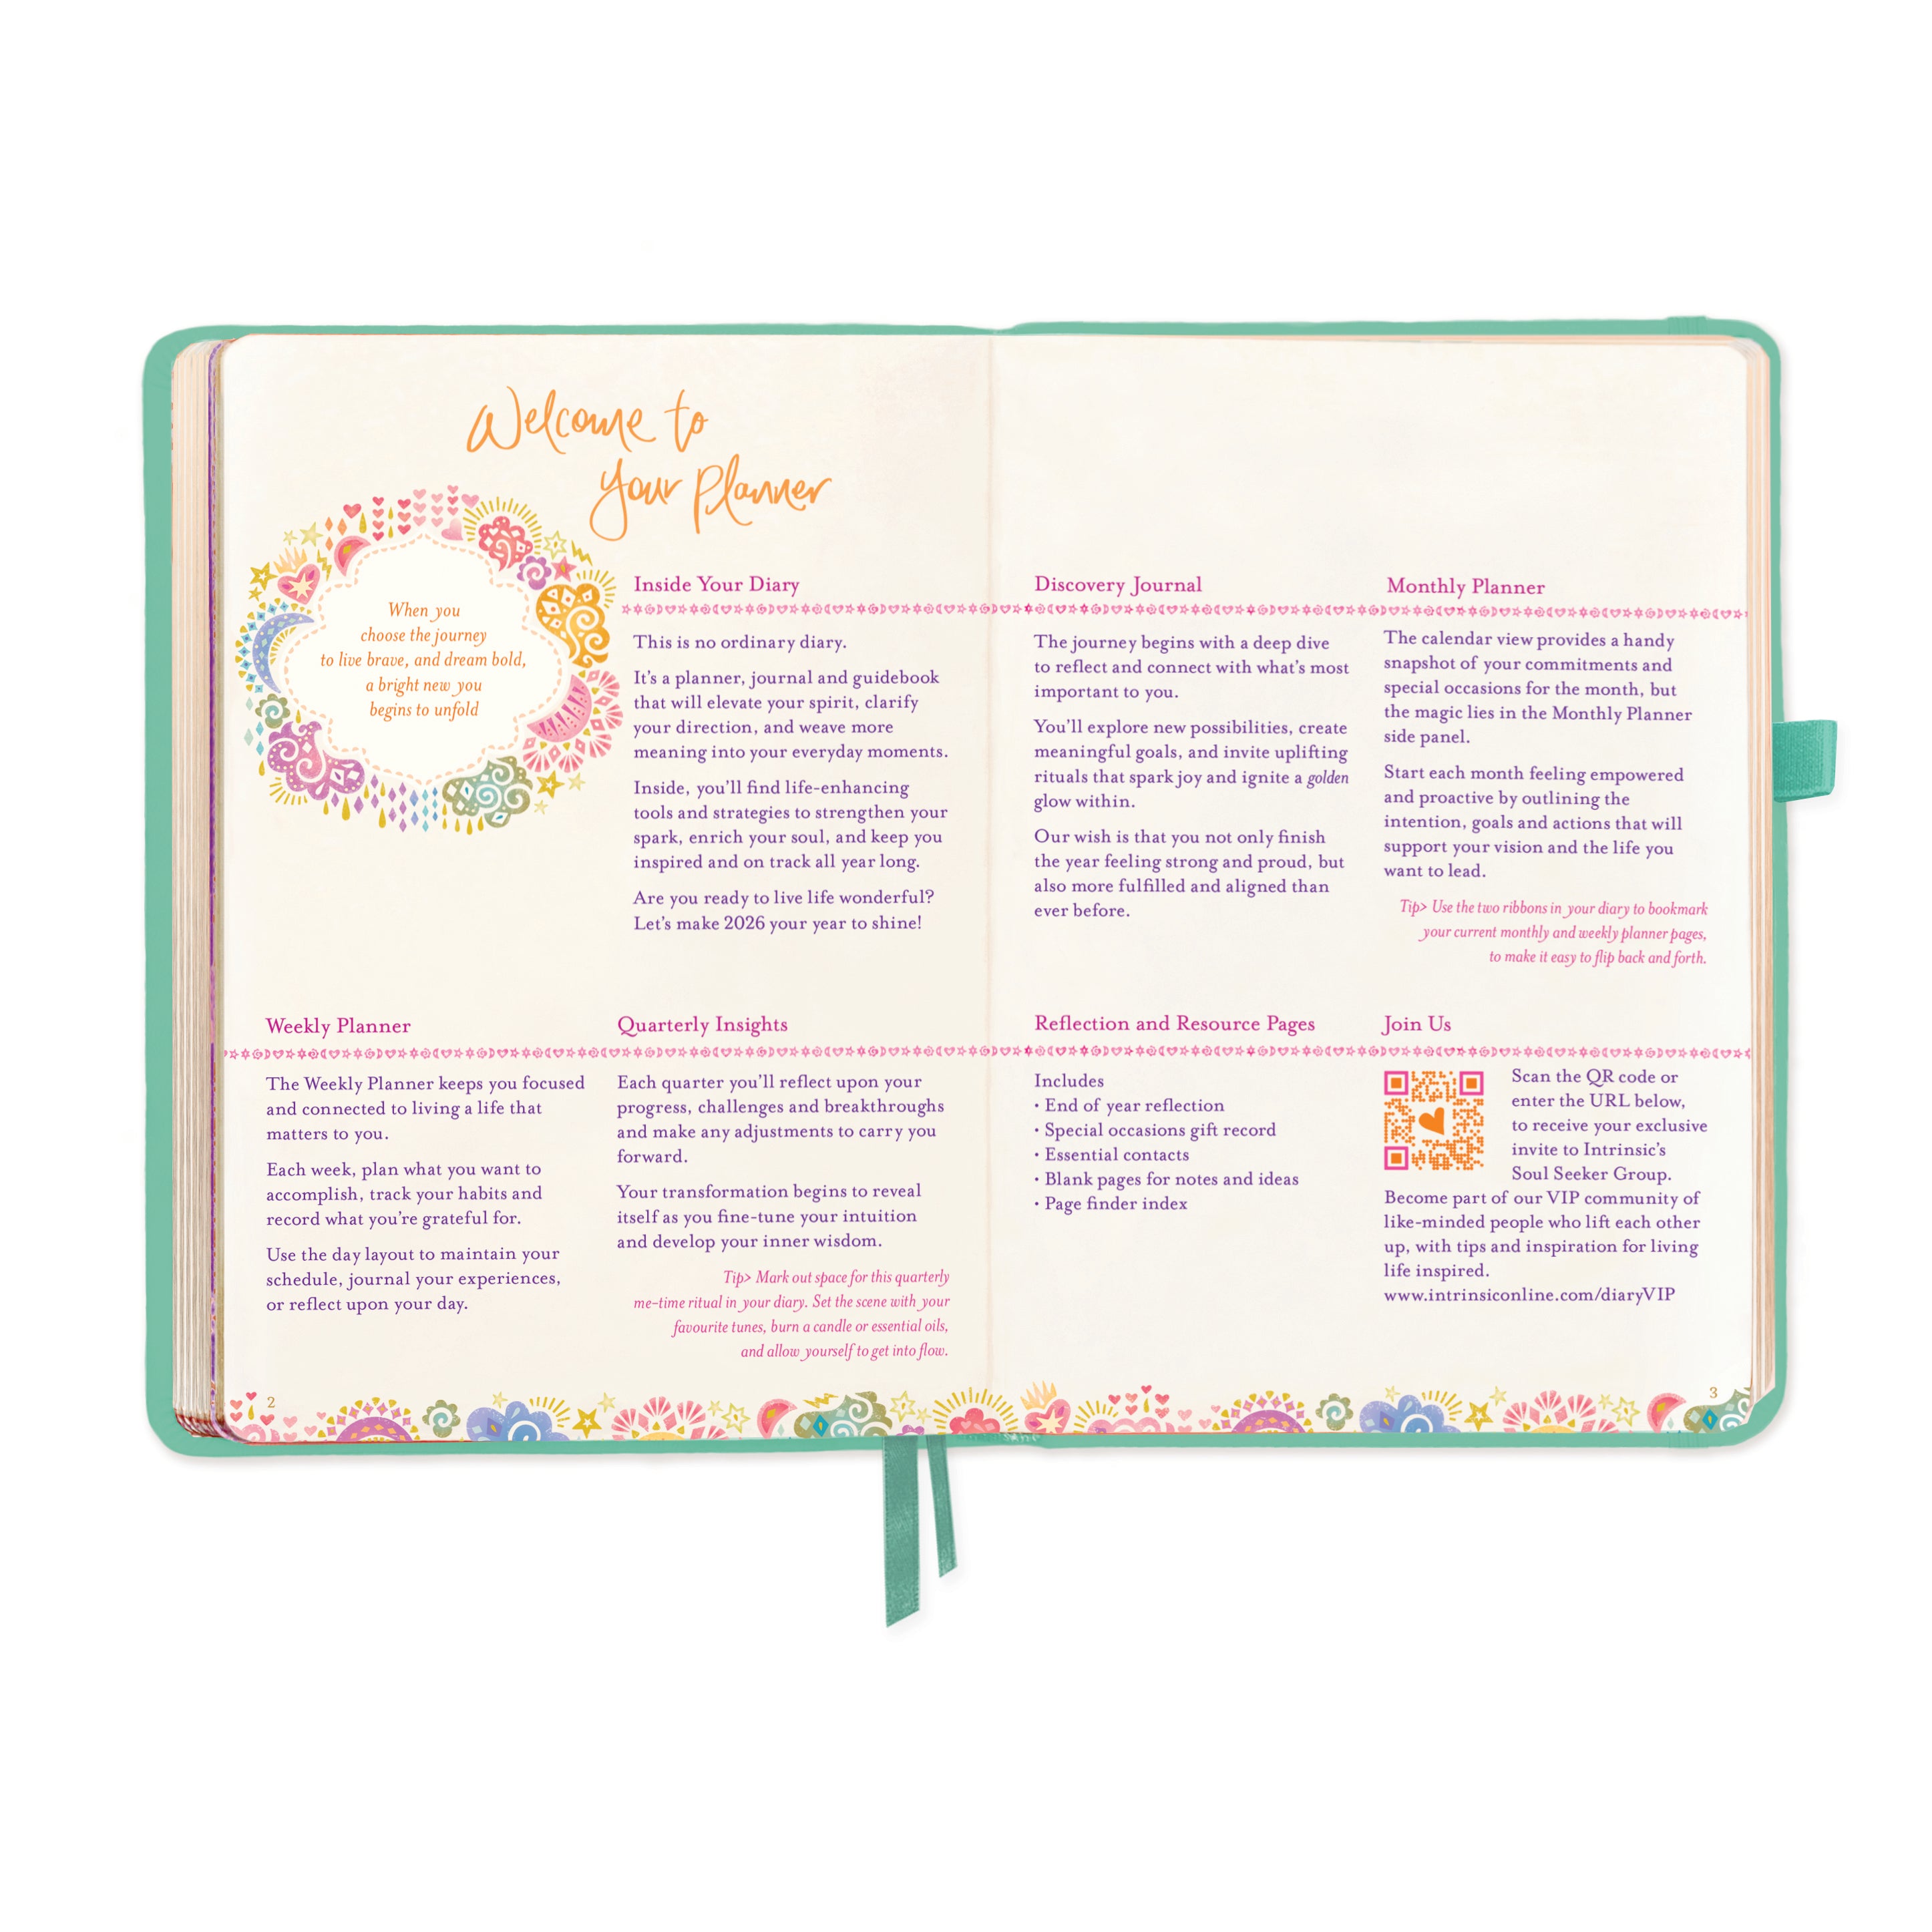 Welcome to
your Planner
When you
choose the journey
to live brave, and dream bold,
a bright new you
begins to unfold
Inside Your Diary
This is no ordinary diary.
It's a planner, journal and guidebook
that will elevate your spirit, clarify
your direction, and weave more
meaning into your everyday moments.
Inside, you'll find life-enhancing
tools and strategies to strengthen your
spark, enrich your soul, and keep you
inspired and on track all year long.
Are you ready to live life wonderful?
Let's make 2026 your year to shine!
Weekly Planner
The Weekly Planner keeps you focused
and connected to living a life that
matters to you.
Each week, plan what you want to
accomplish, track your habits and
record what you're grateful for.
Use the day layout to maintain your
schedule, journal your experiences,
or reflect upon your day.
Quarterly Insights
Each quarter you'll reflect upon your
progress, challenges and breakthroughs
and make any adjustments to carry you
forward.
Your transformation begins to reveal
itself as you fine-tune your intuition
and develop your inner wisdom.
Tip> Mark out space for this quarterly
me-time ritual in your diary. Set the scene with your
favourite tunes, burn a candle or essential oils,
and allow yourself to get into flow.
2
Discovery Journal
The journey begins with a deep dive
to reflect and connect with what's most
important to you.
You'll explore new possibilities, create
meaningful goals, and invite uplifting
rituals that spark joy and ignite a golden
glow within.
Our wish is that you not only finish
the year feeling strong and proud, but
also more fulfilled and aligned than
ever before.
Monthly Planner
The calendar view provides a handy
snapshot of your commitments and
special occasions for the month, but
the magic lies in the Monthly Planner
side panel.
Start each month feeling empowered
and proactive by outlining the
intention, goals and actions that will
support your vision and the life you
want to lead.
Tip> Use the two ribbons in your diary to bookmark
your current monthly and weekly planner pages,
to make it easy to flip back and forth.
Reflection and Resource Pages
Includes
• End of year reflection
• Special occasions gift record
• Essential contacts
• Blank pages for notes and ideas
• Page finder index
Join Us
Scan the QR code or
enter the URL below,
to receive your exclusive
invite to Intrinsic's
Soul Seeker Group.
Become part of our VIP community of
like-minded people who lift each other
up, with tips and inspiration for living
life inspired.
www.intrinsiconline.com/diaryVIP
3